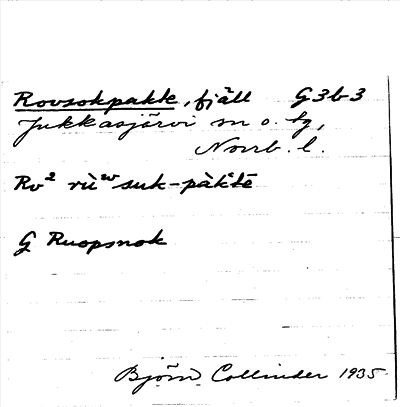 Rovsokpakte, fjäll G3b3
Jukkasjärvi sn o. tg,
Norrb. l.
Rv² rùʷsuk-pàk'tē
G Ruopsnok
Björn Collinder 1935